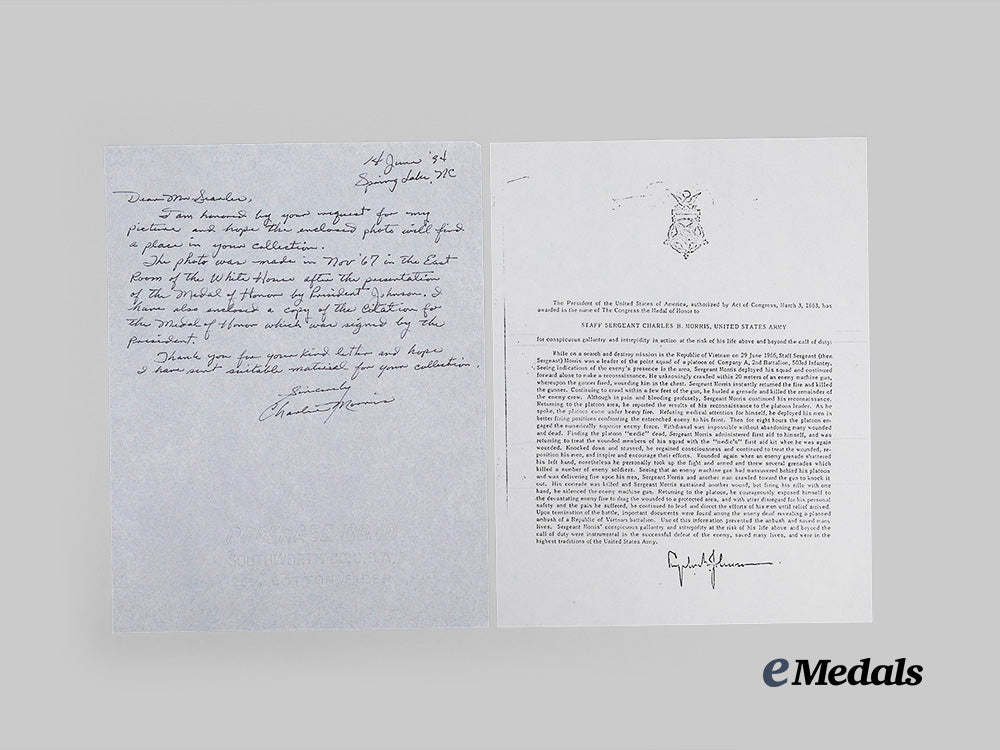 14 June '94
Spring Lake, NC
Dear Mr
I am honored by your request for my
picture and hope the enclosed photo will find
a place in your collection.
The photo was made in Nov '67 in the East
Room of the White House after the presentation
of the Medal of Honor by President Johnson. I
have also enclosed a copy of the citation for
the Medal of Honor which was signed by the
President.
Thank you for your kind letter and hope
I have sent suitable material for your collection.
Sincerely
Charlie Morris
SOUTH
COTTON FIBER
The President of the United States of America, authorized by Act of Congress, March 3, 1863, has
awarded in the name of The Congress the Medal of Honor to
STAFF SERGEANT CHARLES B. MORRIS, UNITED STATES ARMY
for conspicuous gallantry and intrepidity in action at the risk of his life above and beyond the call of duty:
While on a search and destroy mission in the Republic of Vietnam on 29 June 1966, Staff Sergeant (then
Sergeant) Morris was a leader of the point squad of a platoon of Company A, 2nd Battalion, 503d Infantry.
Seeing indications of the enemy's presence in the area, Sergeant Morris deployed his squad and continued
forward alone to make a reconnaissance. He unknowingly crawled within 20 meters of an enemy machine gun,
whereupon the gunner fired, wounding him in the chest. Sergeant Morris instantly returned the fire and killed
the gunner. Continuing to crawl within a few feet of the gun, he hurled a grenade and killed the remainder of
the enemy crew. Although in pain and bleeding profusely, Sergeant Morris continued his reconnaissance.
Returning to the platoon area, he reported the results of his reconnaissance to the platoon leader. As he
spoke, the platoon came under heavy fire. Refusing medical attention for himself, he deployed his men in
better firing positions confronting the entrenched enemy to his front. Then for eight hours the platoon en-
gaged the numerically superior enemy force. Withdrawal was impossible without abandoning many wounded
and dead. Finding the platoon "medic" dead, Sergeant Morris administered first aid to himself, and was
returning to treat the wounded members of his squad with the "medic's" first aid kit when he was again
wounded. Knocked down and stunned, he regained consciousness and continued to treat the wounded, re-
position his men, and inspire and encourage their efforts. Wounded again when an enemy grenade shattered
his left hand, nonetheless he personally took up the fight and armed and threw several grenades which
killed a number of enemy soldiers. Seeing that an enemy machine gun had maneuvered behind his platoon
and was delivering fire upon his men, Sergeant Morris and another man crawled toward the gun to knock it
out. His comrade was killed and Sergeant Morris sustained another wound, but firing his rifle with one
hand, he silenced the enemy machine gun. Returning to the platoon, he courageously exposed himself to
the devastating enemy fire to drag the wounded to a protected area, and with utter disregard for his personal
safety and the pain he suffered, he continued to lead and direct the efforts of his men until relief arrived.
Upon termination of the battle, important documents were found among the enemy dead revealing a planned
ambush of a Republic of Vietnam battalion. Use of this information prevented the ambush and saved many
lives. Sergeant Morris' conspicuous gallantry and intrepidity at the risk of his life above and beyond the
call of duty were instrumental in the successful defeat of the enemy, saved many lives, and were in the
highest traditions of the United States Army.
Lyndon B. Johnson
eMedals